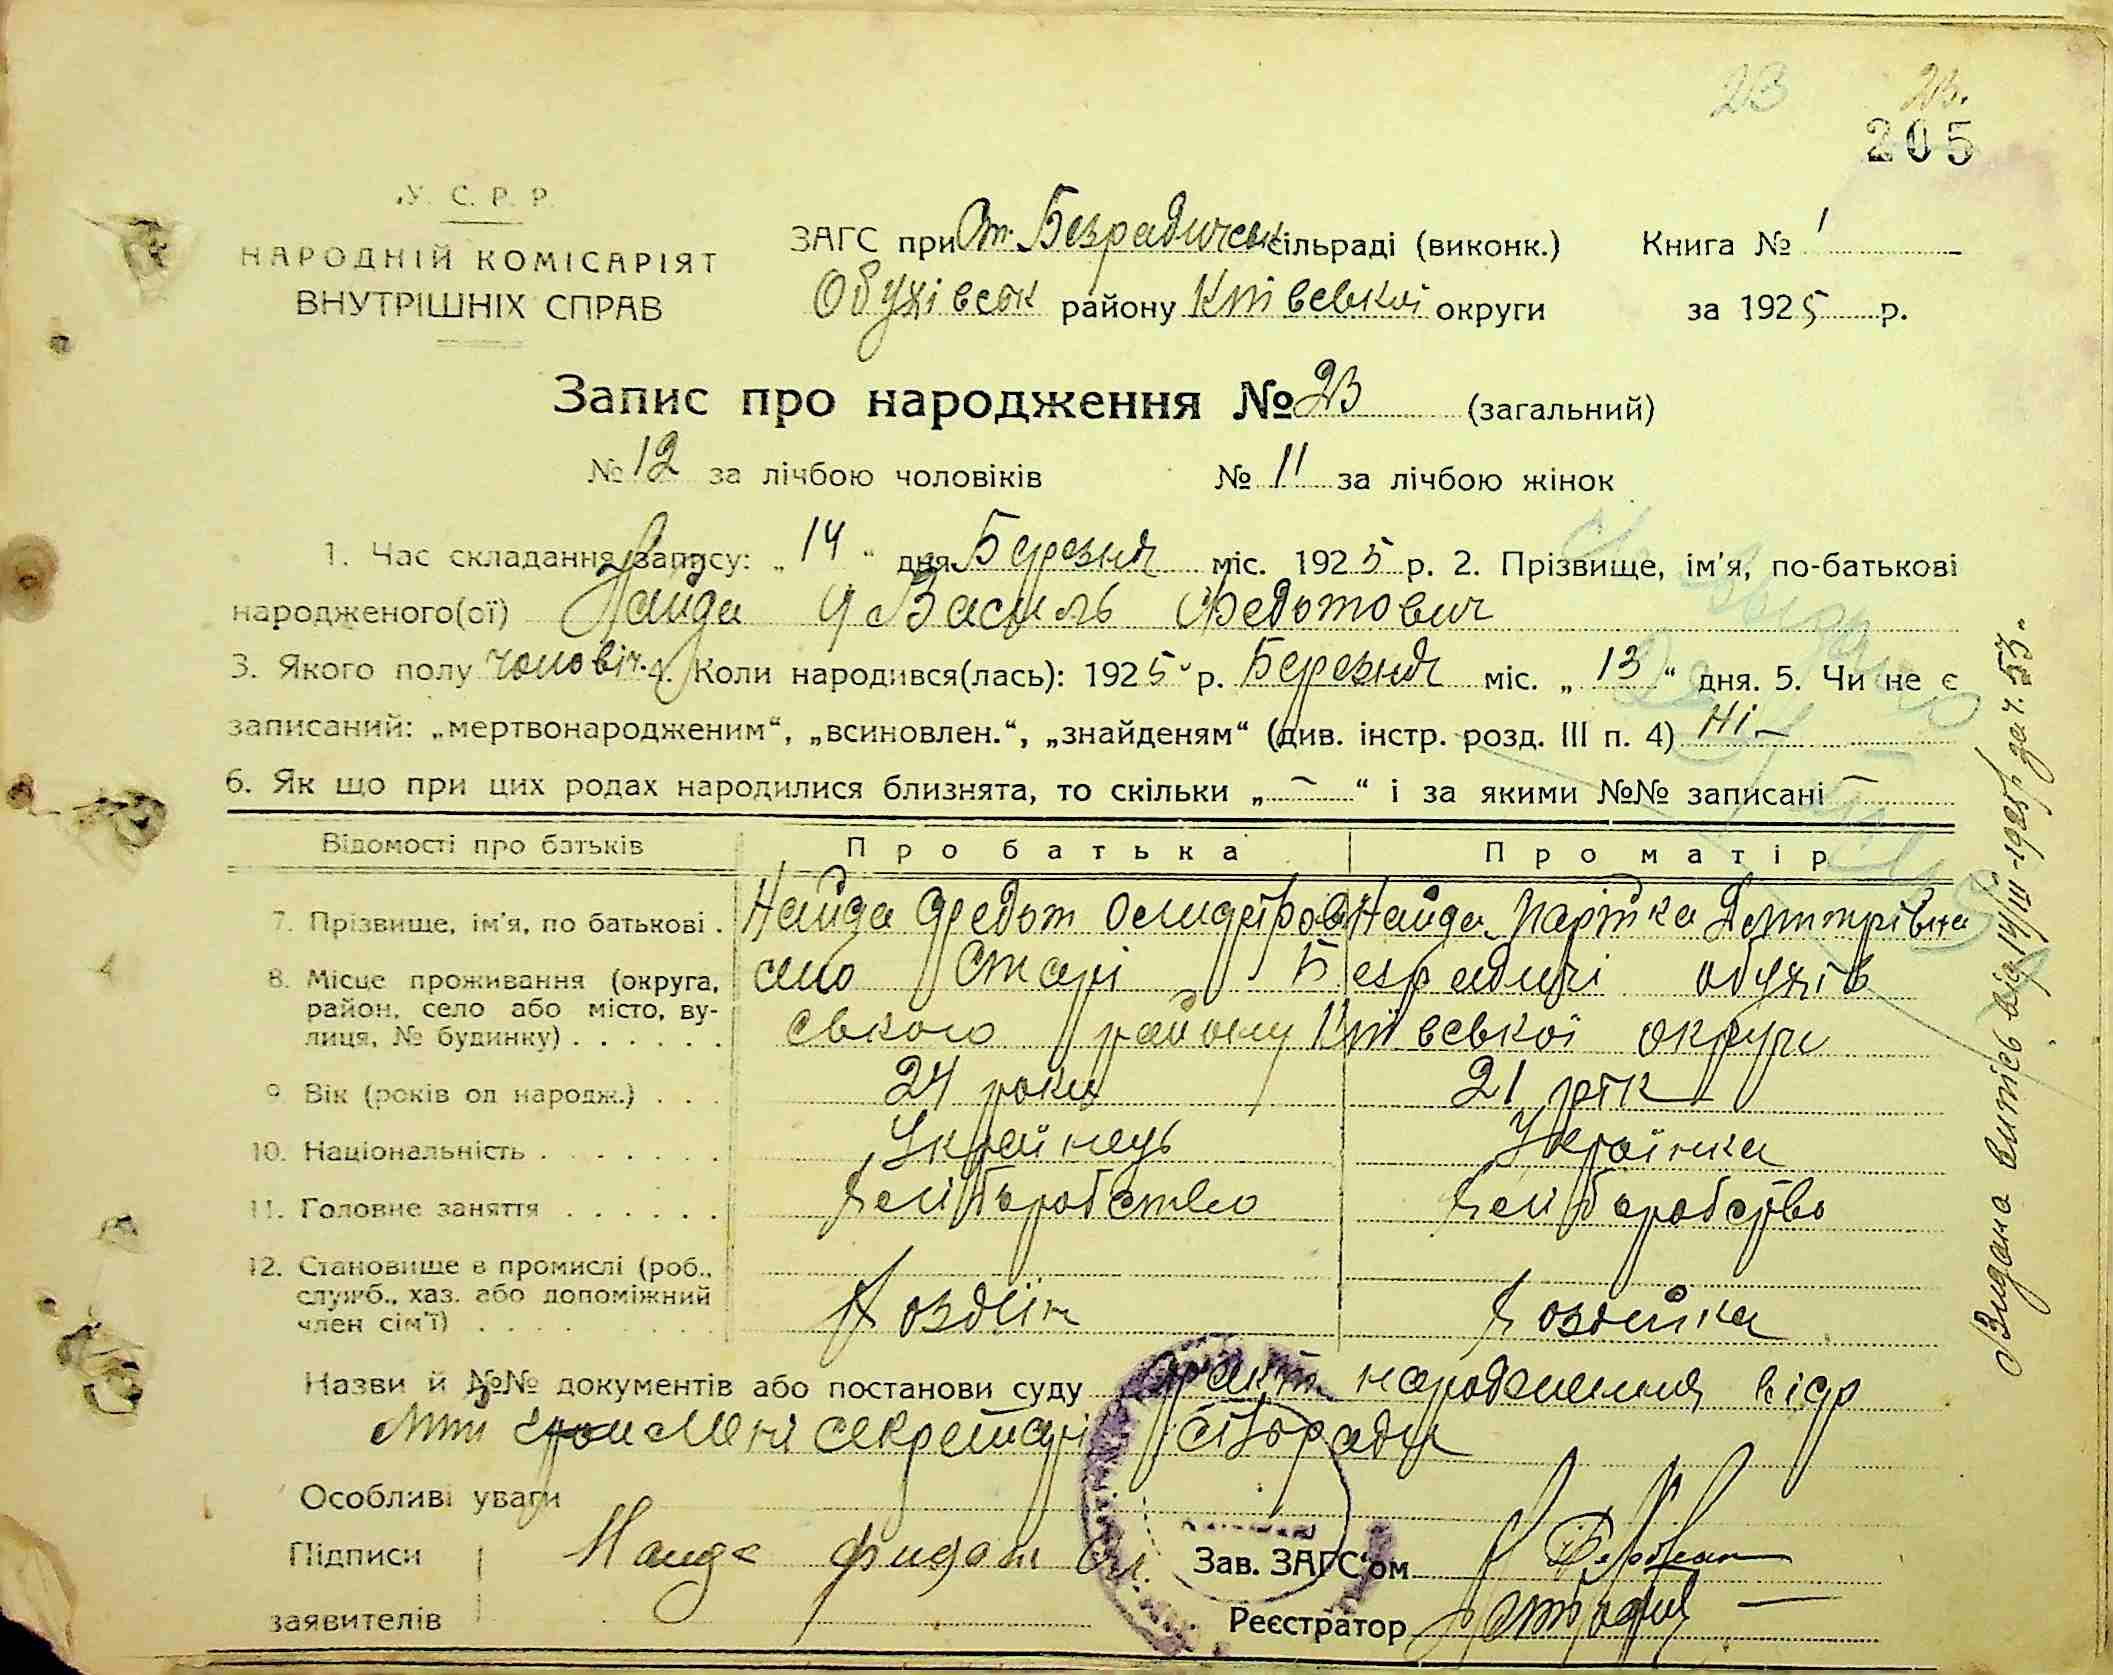 23 23.
205
У. С. Р. Р.
НАРОДНІЙ КОМІСАРІЯТ
ВНУТРІШНІХ СПРАВ
ЗАГС при Ст. Безрадичськ сільраді (виконк.) Книга № 1
Обухівськ району Київської округи за 1925 р.
Запис про народження № 23 (загальний)
№ 12 за лічбою чоловіків № 11 за лічбою жінок
1. Час складання запису: „14“ дня Березня міс. 1925 р. 2. Прізвище, ім'я, по-батькові
народженого(ої) Найда Василь Федотович
3. Якого полу чоловіч. 4. Коли народився(лась): 1925 р. Березня міс. „13“ дня. 5. Чи не є
записаний: „мертвонародженим“, „всиновлен.“, „знайденям“ (див. інстр. розд. III п. 4) Ні
6. Як що при цих родах народилися близнята, то скільки „—“ і за якими №№ записані —
Відомості про батьків Про батька Про матір
7. Прізвище, ім'я, по батькові . Найда Федот Найда Дмитрівна
8. Місце проживання (округа, село Старі Безрадичі Обухів
район, село або місто, ву-
лиця, № будинку) . . . . . . ського району Київської округи
9. Вік (років од народж.) . . . 24 роки 21 рік
10. Національність . . . . . . . Українець Українка
11. Головне заняття . . . . . . Хліборобство Хліборобство
12. Становище в промислі (роб.,
служб., хаз. або допоміжний Хозяїн Хозяйка
член сім'ї) . . . . . . . . .
Назви й №№ документів або постанови суду Факт народження
секретарі сільради
Особливі уваги
Підписи Найда
Зав. ЗАГС'ом
заявителів
Реєстратор
Видано витяг від 14/III-1925 р за ч. 53